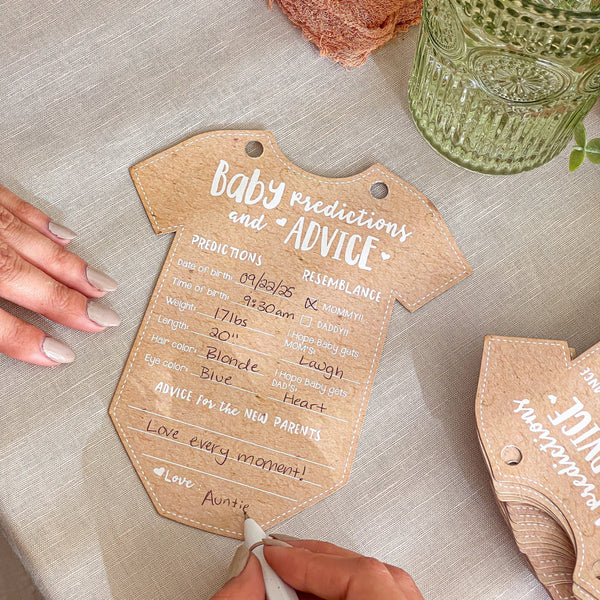 Baby Predictions
and ADVICE
PREDICTIONS
Date of birth: 09/22/25
Time of birth: 9:30am
Weight: 17lbs
Length: 20"
Hair color: Blonde
Eye color: Blue
RESEMBLANCE
X MOMMY!!
DADDY!!
I Hope Baby gets
MOM'S: Laugh
I Hope Baby gets
DAD'S: Heart
ADVICE FOR the NEW PARENTS
Love every moment!
Love Auntie
predictions
DVICE
ANCE